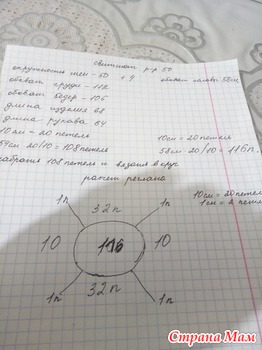 свитшот р-р 50
окружность шеи - 50 + 4 обхват головы 58см
обхват груди - 112
обхват бедер - 106
длина изделия 68
длина рукава 64
10см - 20 петель 10см = 20 петель
54см 20/10 = 108 петель 58см · 20/10 = 116п.
набрала 108 петель и вязала в круг
расчет реглана
10см = 20 петель
1см = 2 петель
1п 32п 1п
10 116 10
1п 32п 1п
Страна Мам